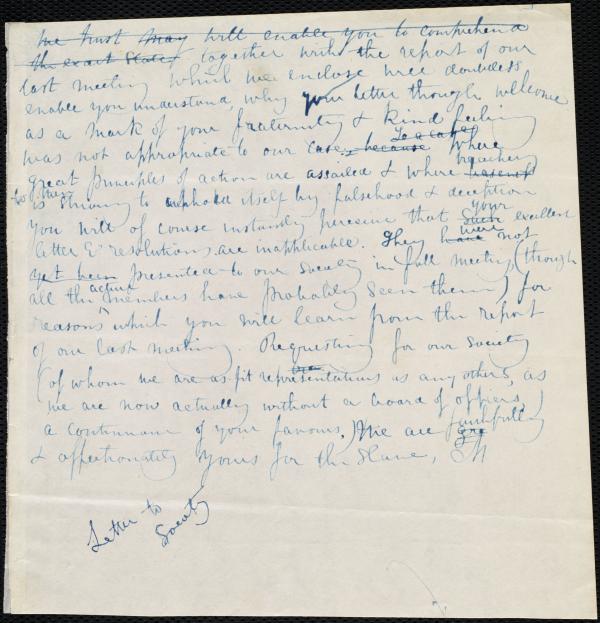 We trust may will enable you to comprehend
the exact state together with the report of our
last meeting which we enclose will doubtless
enable you understand, why your letter though welcome
as a mark of your fraternity & kind feeling
was not appropriate to our case, because to a case where
great principles of action are assailed & where treachery
is striving to uphold itself by falsehood & deception
you will of course instantly perceive that such your excellent
letter & resolutions are inapplicable. They have were not
yet been presented to our Society in full meeting, (though
all the active members have probably seen them) for
reasons which you will learn from the report
of our last meeting. Requesting for our Society
(of whom we are as fit representations as any others, as
we are now actually without a board of officers,)
a continuance of your favours, We are faithfully
& affectionately Yours for the Slave,
Letter to
Society